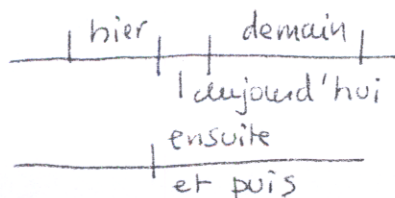 hier demain
aujourd'hui
ensuite
et puis